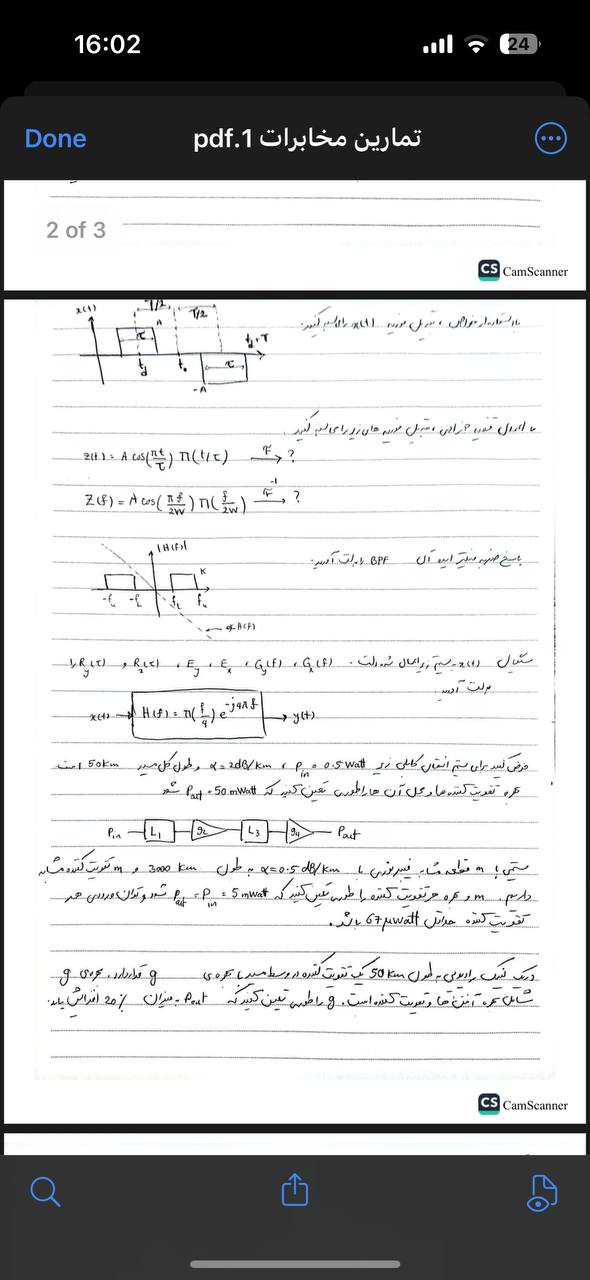 16:02
24
Done
تمارین مخابرات 1.pdf
2 of 3
CS CamScanner
x(t)
T/2
T/2
A
τ
t_d
t_0
t_d+T
τ
-A
با استفاده از خواص، تبدیل فوریه x(t) را محاسبه کنید:
تبدیل فوریه های زیر را محاسبه کنید.
z(t) = A cos(πt/τ) Π(t/τ) F→ ?
Z(f) = A cos(πf/2W) Π(f/2W) F^-1→ ?
پاسخ ضربه فیلتر ایده آل BPF را بدست آورید:
|H(f)|
K
-f_u -f_L f_L f_u
∢H(f)
سیگنال x(t) به سیستم زیر اعمال شده است. G_x(f) ، G_y(f) ، E_x ، E_y ، R_x(τ) و R_y(τ) را
بدست آورید.
x(t) → H(f) = Π(f/4) e^{-j4πf} → y(t)
فرض کنید برای سیستم انتقال کابلی زیر P_in = 0.5 Watt ، α = 2dB/Km و طول کل مسیر 50km است
بهره تقویت کننده ها و محل آن ها را طوری تعیین کنید که P_out = 50 mWatt شود
P_in L_1 g_2 L_3 g_4 P_out
سیستمی با m قطعه مشابه فیبر نوری با α = 0.5 dB/Km به طول 3000 km و m تقویت کننده مشابه
داریم. m و بهره هر تقویت کننده را طوری تعیین کنید که P_out = P_in = 5 mwatt شود و توان ورودی هر
تقویت کننده حداقل 67 μwatt باشد.
در یک لینک رادیویی به طول 50 km یک تقویت کننده در وسط مسیر با بهره ی g قرار دارد. بهره ی g
شامل بهره آنتن ها و تقویت کننده است. g را طوری تعیین کنید که P_out به میزان 20% افزایش یابد.
CS CamScanner